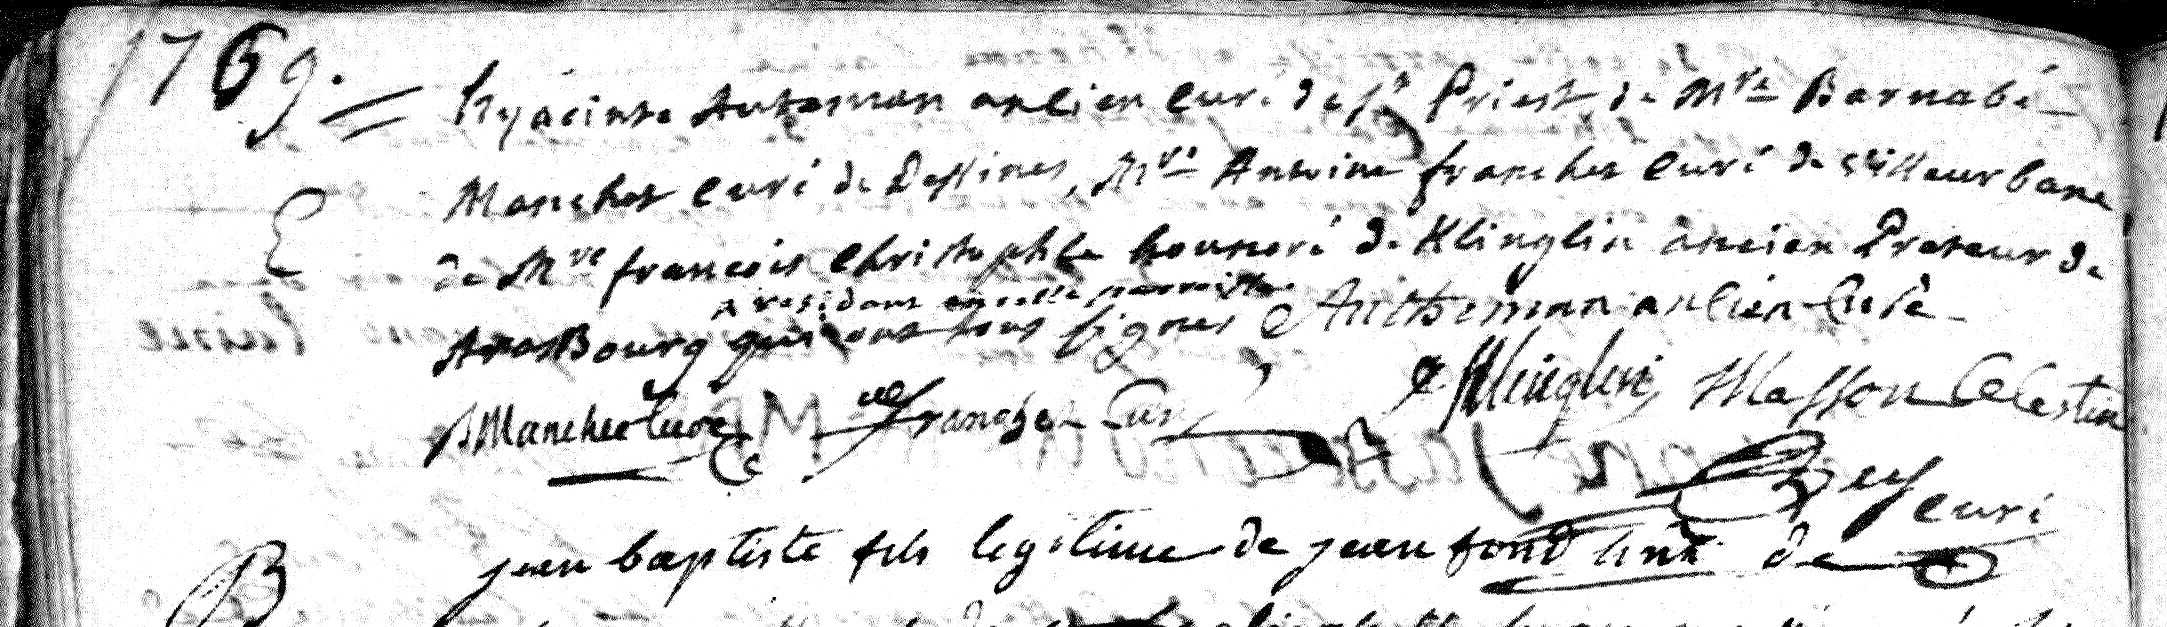 1769.
hyacinte Auteman ancien curé de st Priest, de Mre Barnabé
E
Manchet curé de Dessines, Mre Antoine franchet curé de villeurbane
de Mre francois christophle honnoré de Klinglin ancien Preteur de
x residant en cette parroisse
strasbourg qui ont tous signes Antheman ancien curé
De Klinglin Masson Celestin
B Manchet curé franchet curé
Rey curé
B
jean baptiste fils legitime de jean fond de